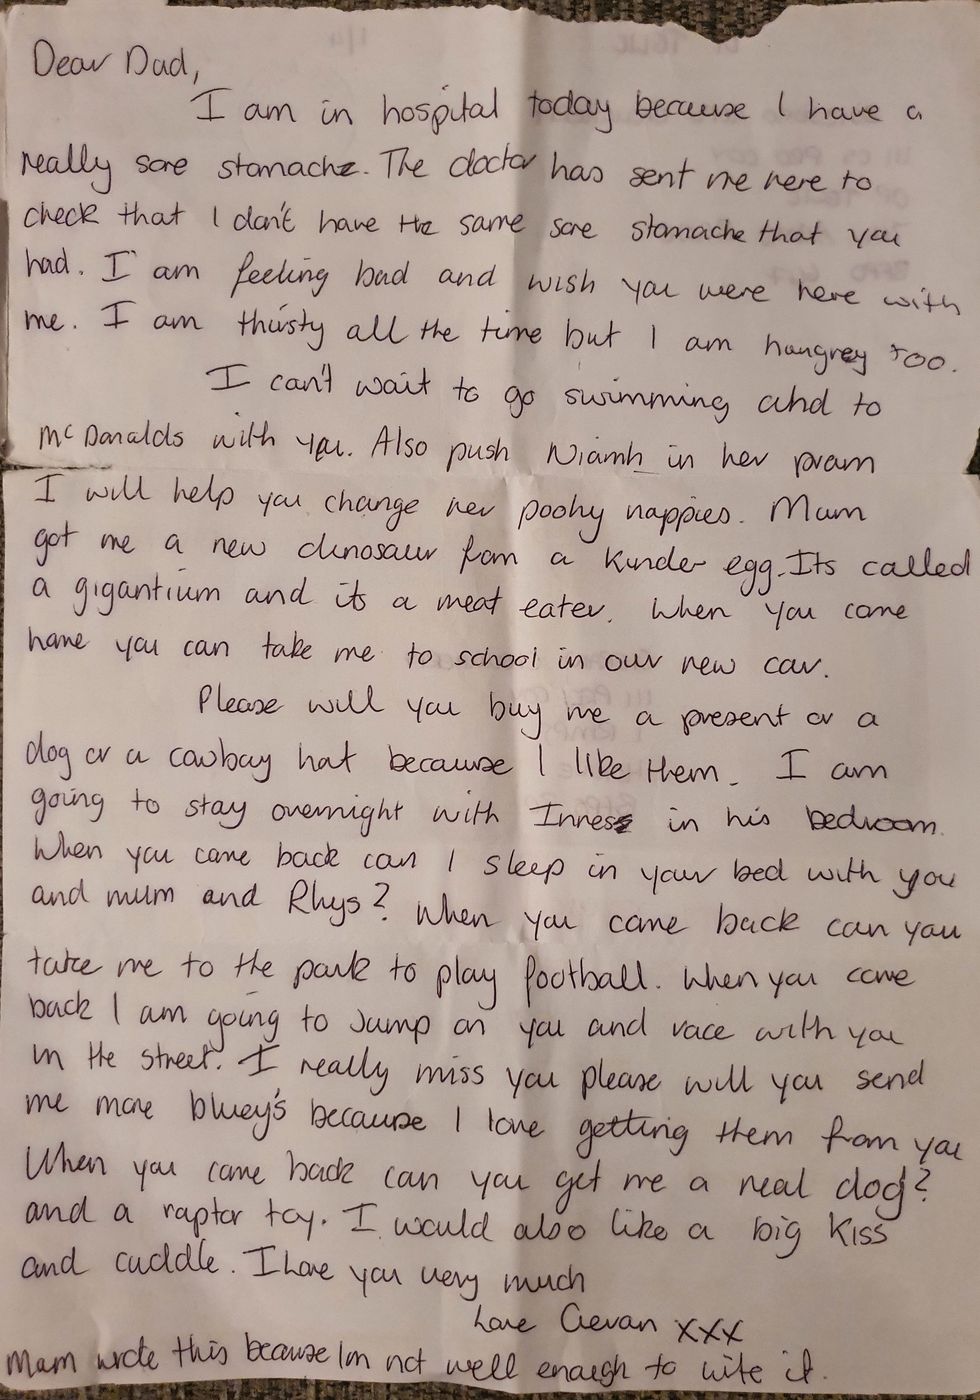 Dear Dad,
I am in hospital today because I have a
really sore stomache. The doctor has sent me here to
check that I don't have the same sore stomache that you
had. I am feeling bad and wish you were here with
me. I am thirsty all the time but I am hungrey too.
I can't wait to go swimming and to
McDonalds with you. Also push Niamh in her pram
I will help you change her poohy nappies. Mum
got me a new dinosaur from a Kinder egg. Its called
a gigantium and its a meat eater. When you come
home you can take me to school in our new car.
Please will you buy me a present or a
dog or a cowboy hat because I like them. I am
going to stay overnight with Innes in his bedroom.
When you come back can I sleep in your bed with you
and mum and Rhys? When you come back can you
take me to the park to play football. When you come
back I am going to Jump on you and race with you
in the street. I really miss you please will you send
me more bluey's because I love getting them from you
When you come back can you get me a real dog?
and a raptor toy. I would also like a big Kiss
and cuddle. I Love you very much
Love Cievan xxx
Mam wrote this because Im not well enough to wite it.